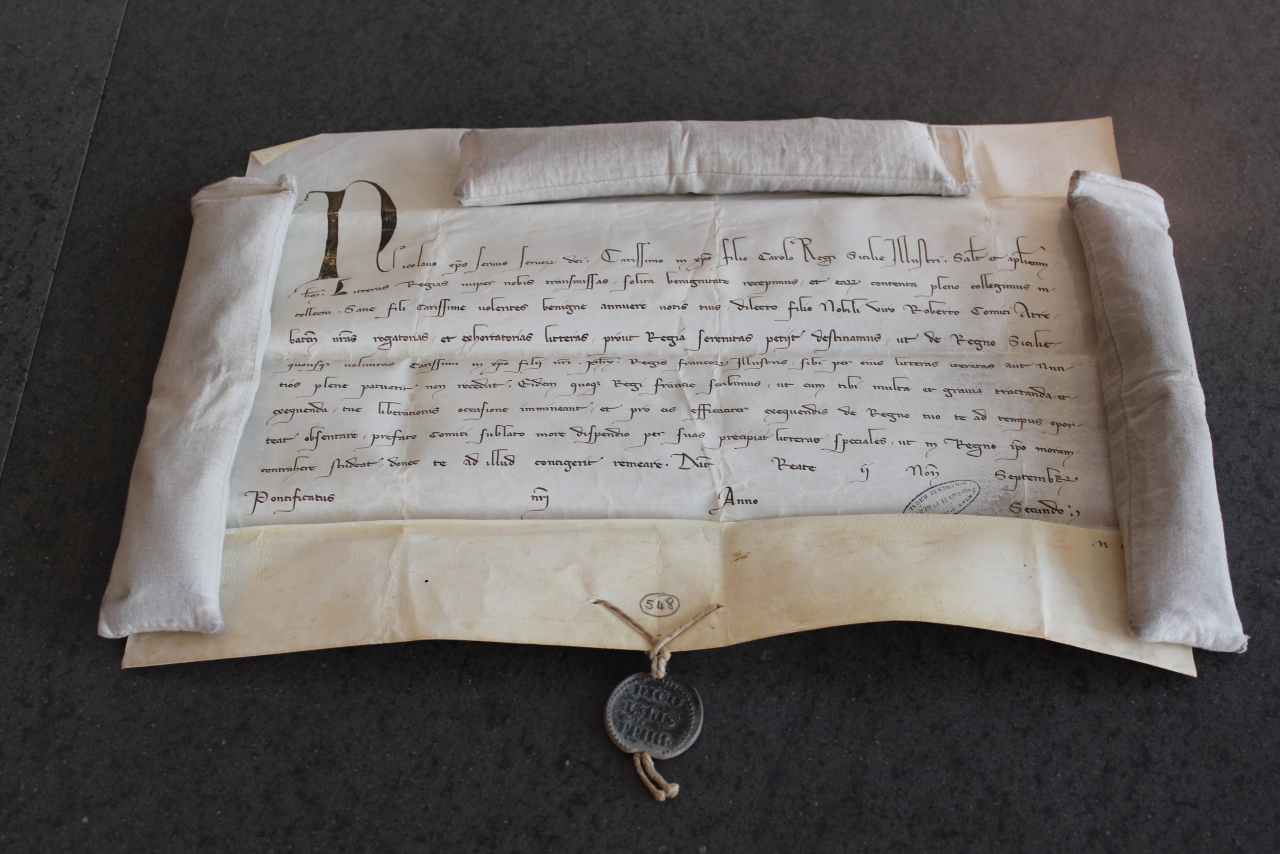 Nicolaus eps servus servor dei. Carissimo in xpo filio Carolo Regi Sicilie Illustri. Salt et aplicam
ben. Litteras Regias nuper nobis transmissas, solita benignitate recepimus, et earum contenta pleno collegimus in-
tellectu. Sane fili Carissime volentes benigne annuere votis tuis, dilecto filio Nobili viro Roberto Comiti Atre-
baten nras rogatorias, et exhortatorias litteras, prout Regia serenitas petijt destinamus, ut de Regno Sicilie
quousq voluntas Carissimi in xpo filij nri Regis francor Illustris, sibi per eius litteras iteratas aut Nun-
tios plene patuerit non recedat. Eidem quoq Regi francie scribimus, ut cum tibi multa et gravia tractanda et
exequenda, tue liberationis occasione immineant, et pro eis efficaciter exequendis de Regno tuo te ad tempus opor-
teat absentare, prefato Comiti sublato more dispendio per suas precipiat litteras speciales, ut in Regno ipo moram
contrahere studeat donec te ad illud contigerit remeare. Dat Reate ij Non Septembr
Pontificatus nri Anno Secundo
548